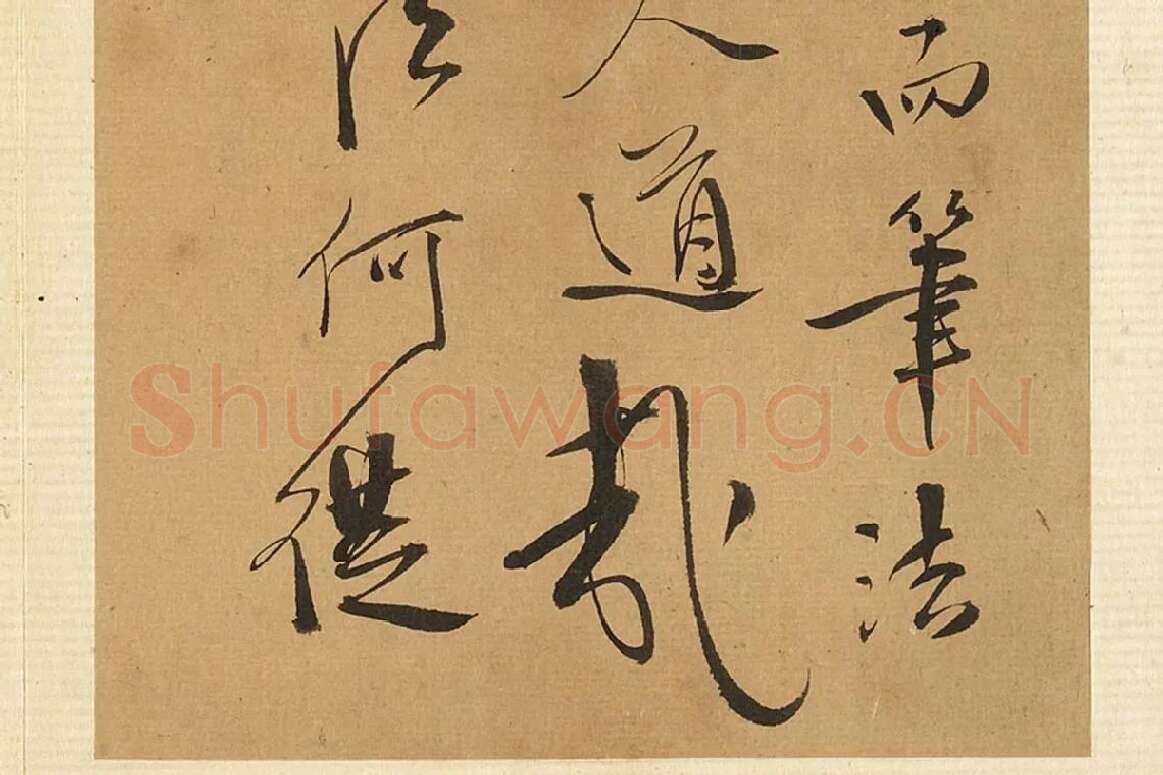 而筆法
人道哉
何從
Shufawang.CN